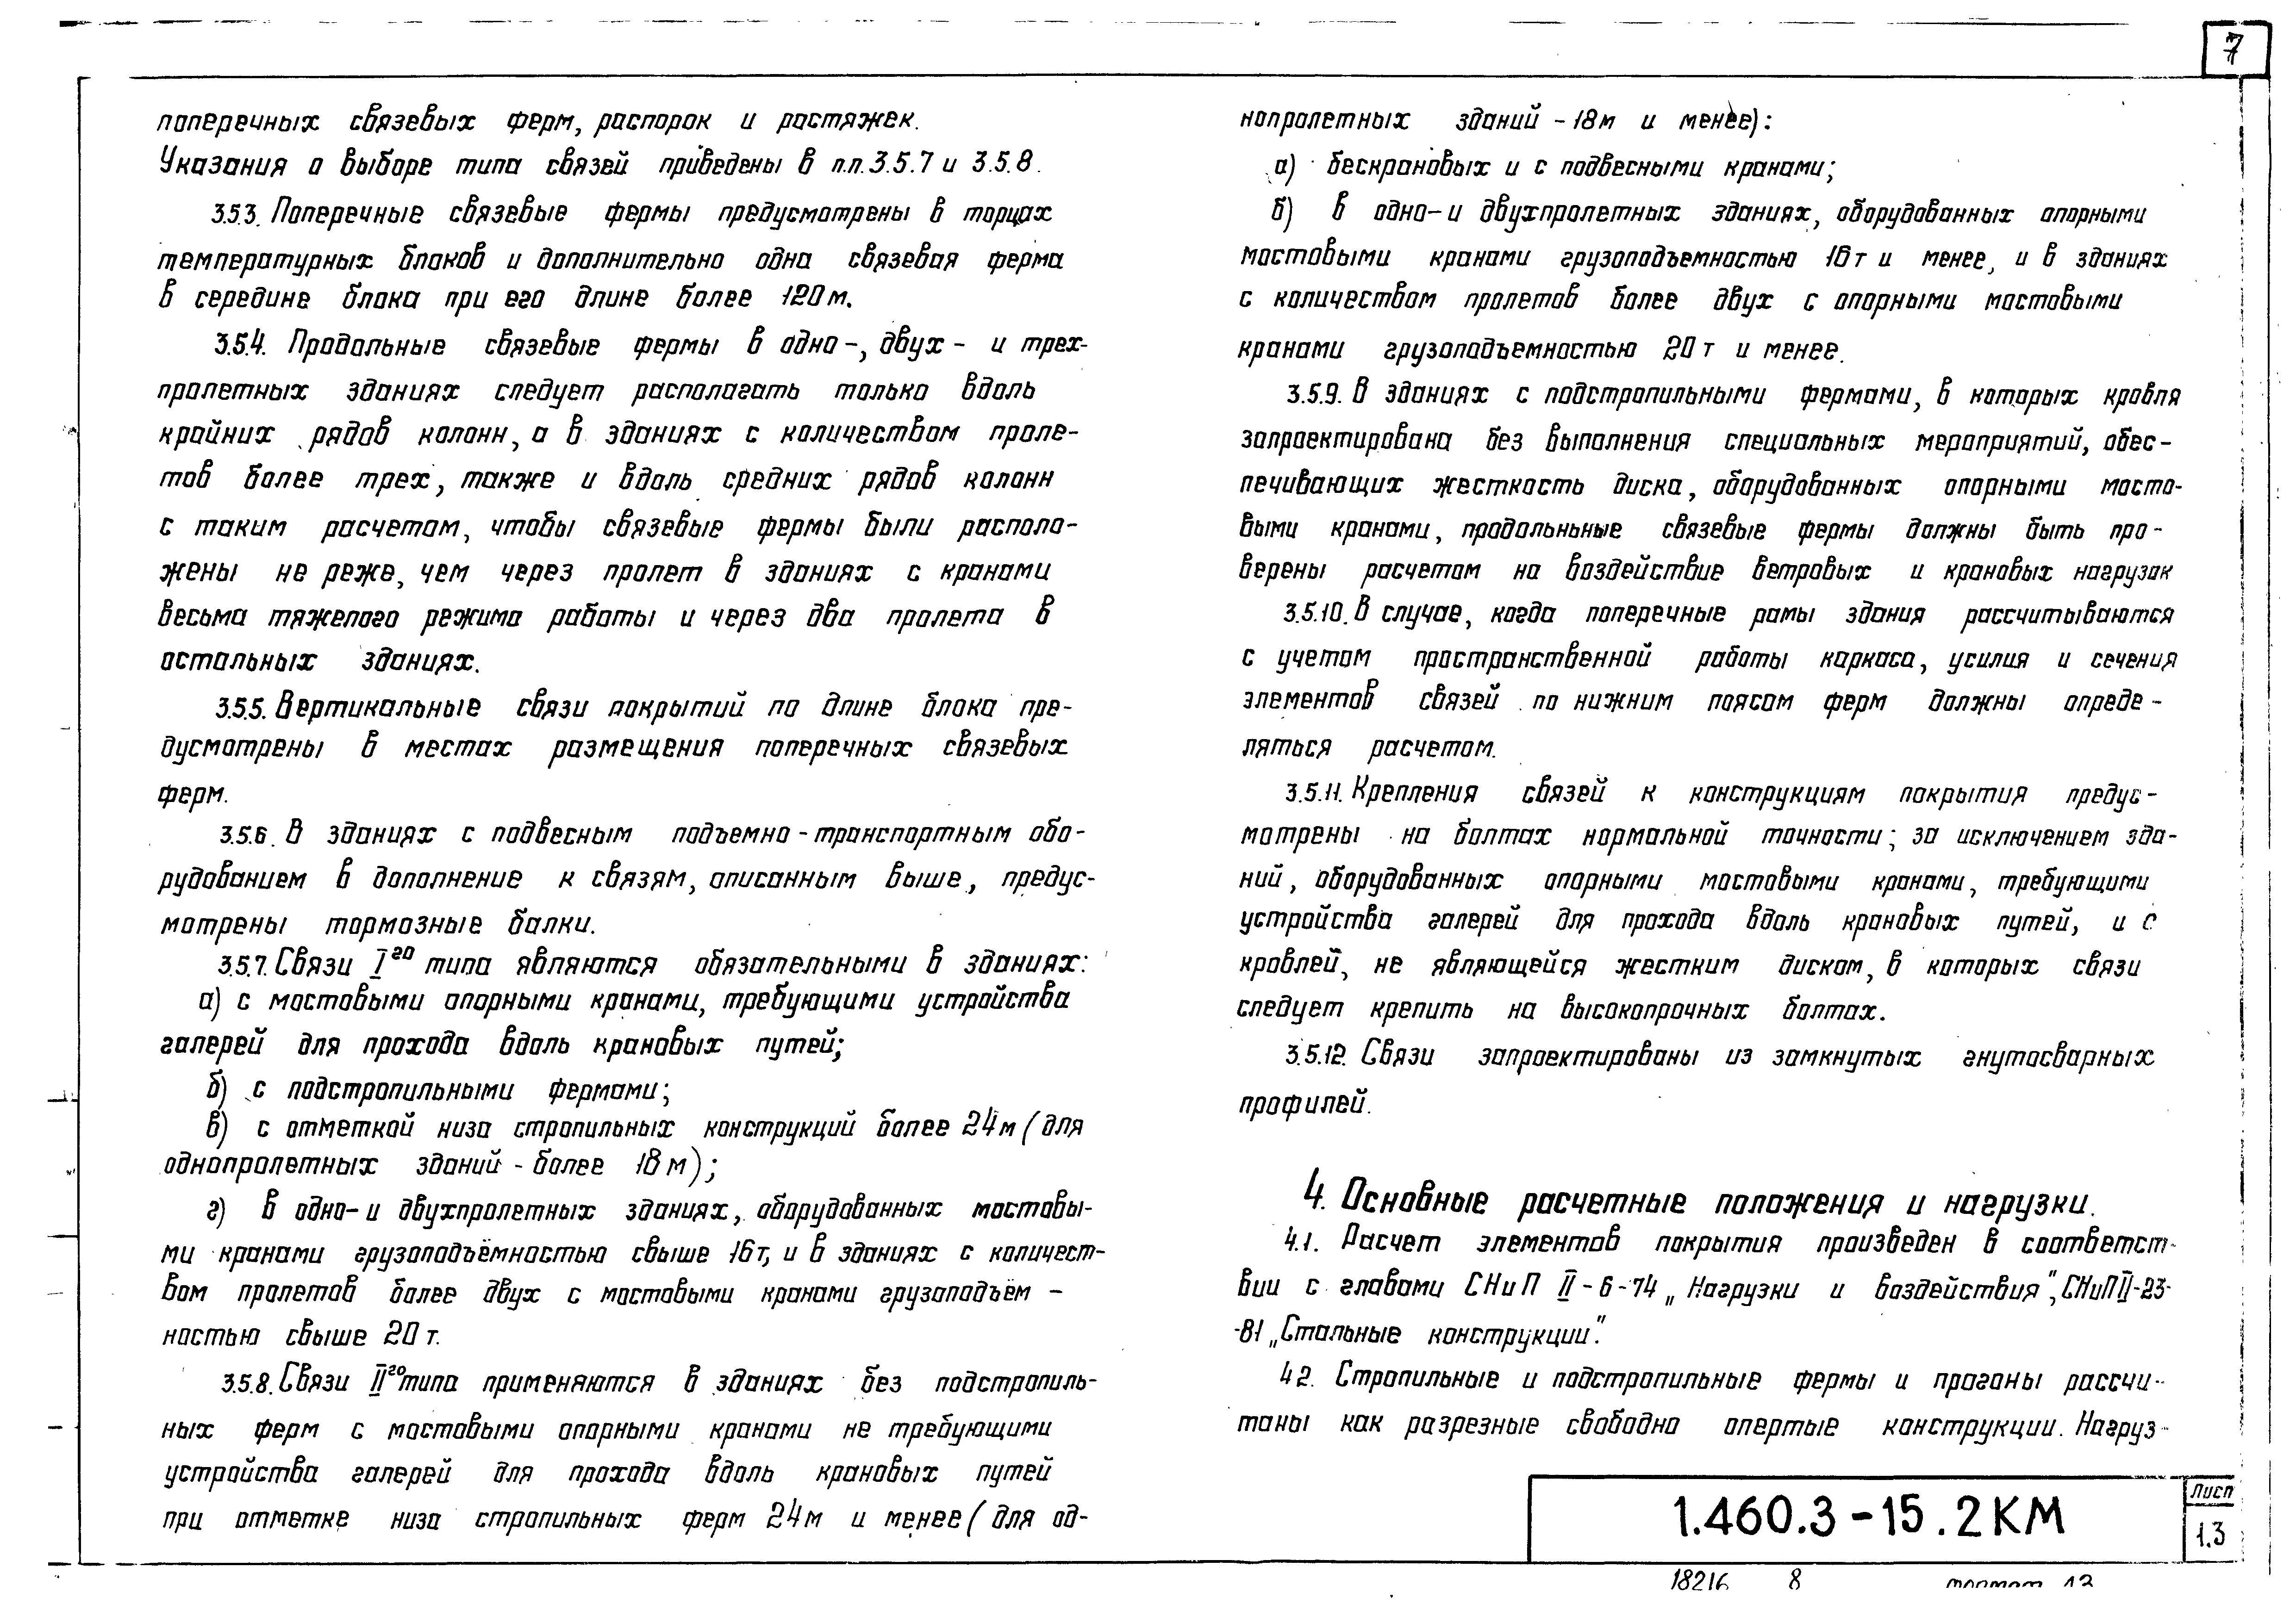 7
поперечных связевых ферм, распорок и растяжек.
Указания о выборе типа связей приведены в п.п. 3.5.7 и 3.5.8.
3.5.3. Поперечные связевые фермы предусмотрены в торцах
температурных блоков и дополнительно одна связевая ферма
в середине блока при его длине более 120 м.
3.5.4. Продольные связевые фермы в одно-, двух- и трех-
пролетных зданиях следует располагать только вдоль
крайних рядов колонн, а в зданиях с количеством проле-
тов более трех, также и вдоль средних рядов колонн
с таким расчетом, чтобы связевые фермы были располо-
жены не реже, чем через пролет в зданиях с кранами
весьма тяжелого режима работы и через два пролета в
остальных зданиях.
3.5.5. Вертикальные связи покрытий по длине блока пре-
дусмотрены в местах размещения поперечных связевых
ферм.
3.5.6. В зданиях с подвесным подъемно-транспортным обо-
рудованием в дополнение к связям, описанным выше, предус-
мотрены тормозные балки.
3.5.7. Связи I го типа являются обязательными в зданиях:
а) с мостовыми опорными кранами, требующими устройства
галерей для прохода вдоль крановых путей;
б) с подстропильными фермами;
в) с отметкой низа стропильных конструкций более 24 м (для
однопролетных зданий - более 18 м);
г) в одно- и двухпролетных зданиях, оборудованных мостовы-
ми кранами грузоподъёмностью свыше 16 т, и в зданиях с количест-
вом пролетов более двух с мостовыми кранами грузоподъём-
ностью свыше 20 т.
3.5.8. Связи II го типа применяются в зданиях без подстропиль-
ных ферм с мостовыми опорными кранами не требующими
устройства галерей для прохода вдоль крановых путей
при отметке низа стропильных ферм 24 м и менее (для од-
нопролетных зданий - 18 м и менее):
а) бескрановых и с подвесными кранами;
б) в одно- и двухпролетных зданиях, оборудованных опорными
мостовыми кранами грузоподъемностью 16 т и менее, и в зданиях
с количеством пролетов более двух с опорными мостовыми
кранами грузоподъемностью 20 т и менее.
3.5.9. В зданиях с подстропильными фермами, в которых кровля
запроектирована без выполнения специальных мероприятий, обес-
печивающих жесткость диска, оборудованных опорными мосто-
выми кранами, продольньные связевые фермы должны быть про-
верены расчетом на воздействие ветровых и крановых нагрузок
3.5.10. В случае, когда поперечные рамы здания рассчитываются
с учетом пространственной работы каркаса, усилия и сечения
элементов связей по нижним поясам ферм должны опреде-
ляться расчетом.
3.5.11. Крепления связей к конструкциям покрытия предус-
мотрены на болтах нормальной точности; за исключением зда-
ний, оборудованных опорными мостовыми кранами, требующими
устройства галерей для прохода вдоль крановых путей, и с
кровлей, не являющейся жестким диском, в которых связи
следует крепить на высокопрочных болтах.
3.5.12. Связи запроектированы из замкнутых гнутосварных
профилей.
4. Основные расчетные положения и нагрузки.
4.1. Расчет элементов покрытия произведен в соответст-
вии с главами СНиП II-6-74 „Нагрузки и воздействия", СНиП II-23-
-81 „Стальные конструкции".
4.2. Стропильные и подстропильные фермы и прогоны рассчи-
таны как разрезные свободно опертые конструкции. Нагруз-
1.460.3-15.2КМ
Лист
1.3
18216 8 формат А3